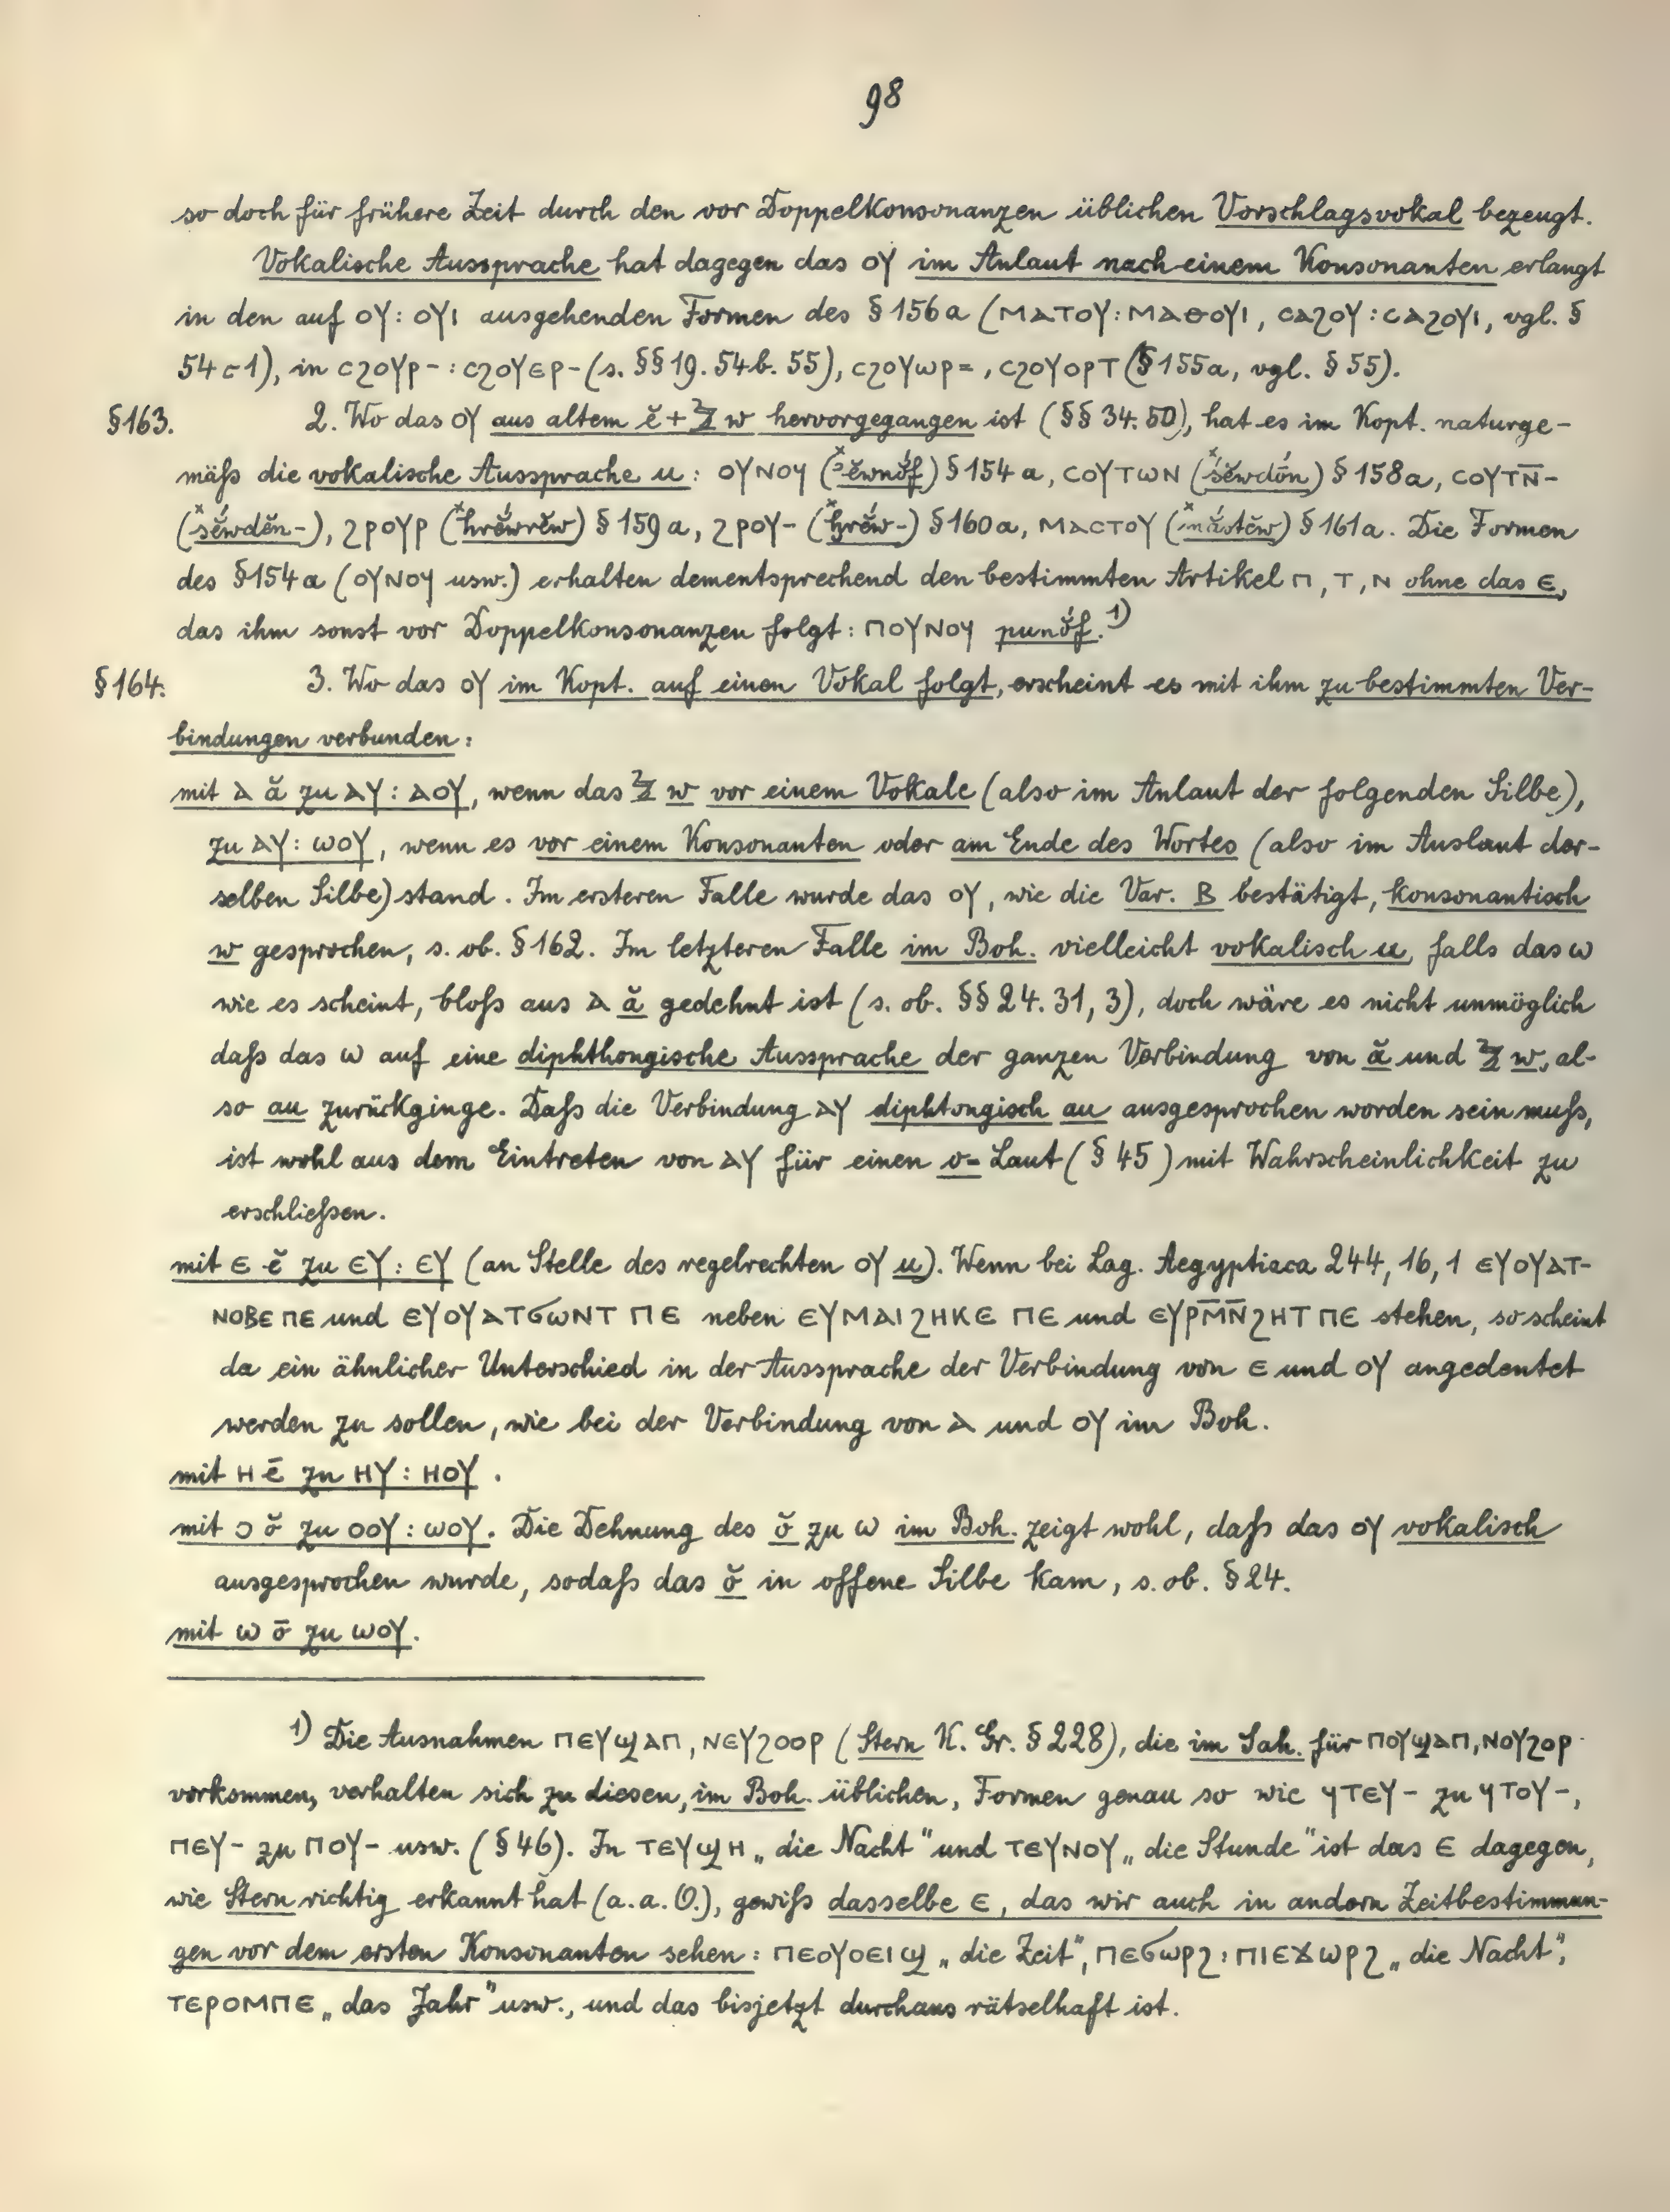 98
so doch für frühere Zeit durch den vor Doppelkonsonanzen üblichen Vorschlagsvokal bezeugt.
Vokalische Aussprache hat dagegen das ⲟⲩ im Anlaut nach einem Konsonanten erlangt
in den auf ⲟⲩ: ⲟⲩⲓ ausgehenden Formen des § 156a (ⲙⲁⲧⲟⲩ: ⲙⲁⲑⲟⲩⲓ, ⲥⲁϩⲟⲩ: ⲥⲁϩⲟⲩⲓ, vgl. §
54 c 1), in ⲥϩⲟⲩⲣ-: ⲥϩⲟⲩⲉⲣ- (s. §§ 19. 54b. 55), ⲥϩⲟⲩⲱⲣ=, ⲥϩⲟⲩⲟⲣⲧ (§ 155a, vgl. § 55).
§163. 2. Wo das ⲟⲩ aus altem ĕ + w hervorgegangen ist (§§ 34. 50), hat es im Kopt. naturge-
mäß die vokalische Aussprache u: ⲟⲩⲛⲟϥ § 154a, ⲥⲟⲩⲧⲱⲛ (ˣśĕwdōn) § 158a, ⲥⲟⲩⲧⲛ̅-
(ˣśĕwdĕn-), ϩⲣⲟⲩⲣ (ˣhrĕ́wrĕw) § 159a, ϩⲣⲟⲩ- (ˣḫrĕ́w-) § 160a, ⲙⲁⲥⲧⲟⲩ (ˣmắstĕw) § 161a. Die Formen
des § 154a (ⲟⲩⲛⲟϥ usw.) erhalten dementsprechend den bestimmten Artikel ⲡ, ⲧ, ⲛ ohne das ⲉ,
das ihm sonst vor Doppelkonsonanzen folgt: ⲡⲟⲩⲛⲟϥ punŏ́f.¹)
§164. 3. Wo das ⲟⲩ im Kopt. auf einen Vokal folgt, erscheint es mit ihm zu bestimmten Ver-
bindungen verbunden:
mit ⲁ ă zu ⲁⲩ: ⲁⲟⲩ, wenn das w vor einem Vokale (also im Anlaut der folgenden Silbe),
zu ⲁⲩ: ⲱⲟⲩ, wenn es vor einem Konsonanten oder am Ende des Wortes (also im Auslaut der-
selben Silbe) stand. Im ersteren Falle wurde das ⲟⲩ, wie die Var. ⲃ bestätigt, konsonantisch
w gesprochen, s. ob. § 162. Im letzteren Falle im Boh. vielleicht vokalisch u, falls das ⲱ
wie es scheint, bloß aus ⲁ ă gedehnt ist (s. ob. §§ 24. 31, 3), doch wäre es nicht unmöglich
daß das ⲱ auf eine diphthongische Aussprache der ganzen Verbindung von ă und w, al-
so au zurückginge. Daß die Verbindung ⲁⲩ diphtongisch au ausgesprochen worden sein muß,
ist wohl aus dem Eintreten von ⲁⲩ für einen o-Laut (§ 45) mit Wahrscheinlichkeit zu
erschließen.
mit ⲉ ĕ zu ⲉⲩ: ⲉⲩ (an Stelle des regelrechten ⲟⲩ u). Wenn bei Lag. Aegyptiaca 244, 16, 1 ⲉⲩⲟⲩⲁⲧ-
ⲛⲟⲃⲉ ⲡⲉ und ⲉⲩⲟⲩⲁⲧϭⲱⲛⲧ ⲡⲉ neben ⲉⲩⲙⲁⲓϩⲏⲕⲉ ⲡⲉ und ⲉⲩⲣⲙ̅ⲛ̅ϩⲏⲧ ⲡⲉ stehen, so scheint
da ein ähnlicher Unterschied in der Aussprache der Verbindung von ⲉ und ⲟⲩ angedeutet
werden zu sollen, wie bei der Verbindung von ⲁ und ⲟⲩ im Boh.
mit ⲏ ē zu ⲏⲩ: ⲏⲟⲩ.
mit ⲟ ŏ zu ⲟⲟⲩ: ⲱⲟⲩ. Die Dehnung des ŏ zu ⲱ im Boh. zeigt wohl, daß das ⲟⲩ vokalisch
ausgesprochen wurde, sodaß das ŏ in offene Silbe kam, s. ob. § 24.
mit ⲱ ō zu ⲱⲟⲩ.
¹) Die Ausnahmen ⲡⲉⲩϣⲁⲡ, ⲛⲉⲩϩⲟⲟⲣ (Stern K. Gr. § 228), die im Sah. für ⲡⲟⲩϣⲁⲡ, ⲛⲟⲩϩⲟⲣ
vorkommen, verhalten sich zu diesen, im Boh. üblichen, Formen genau so wie ϥⲧⲉⲩ- zu ϥⲧⲟⲩ-,
ⲡⲉⲩ- zu ⲡⲟⲩ- usw. (§ 46). In ⲧⲉⲩϣⲏ „die Nacht" und ⲧⲉⲩⲛⲟⲩ „die Stunde" ist das ⲉ dagegen,
wie Stern richtig erkannt hat (a. a. O.), gewiß dasselbe ⲉ, das wir auch in andern Zeitbestimmun-
gen vor dem ersten Konsonanten sehen: ⲡⲉⲟⲩⲟⲉⲓϣ „die Zeit", ⲡⲉϭⲱⲣϩ: ⲡⲓⲉϫⲱⲣϩ „die Nacht",
ⲧⲉⲣⲟⲙⲡⲉ „das Jahr" usw., und das bisjetzt durchaus rätselhaft ist.